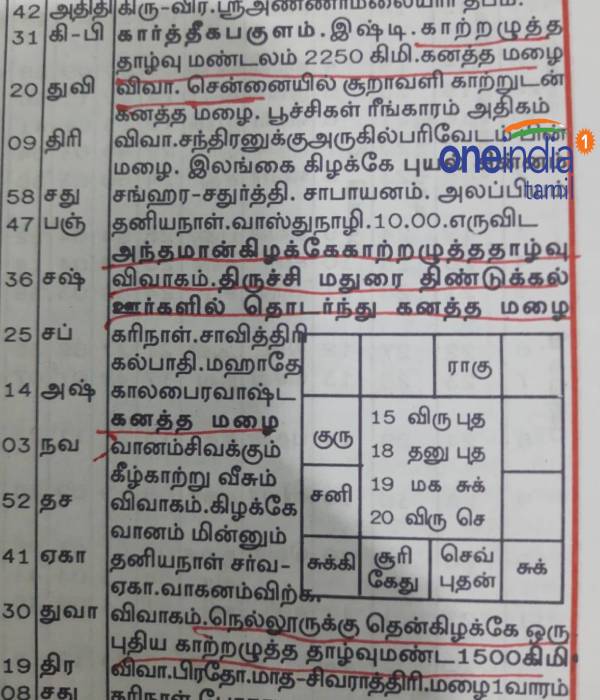 42 அதிதி கிரு-விர.ஸ்ரீஅண்ணாமலையார் தீபம்.
31 கி-பி கார்த்தீகபகுளம்.இஷ்டி.காற்றழுத்த
தாழ்வு மண்டலம் 2250 கிமி.கனத்த மழை
20 துவி விவா. சென்னையில் சூறாவளி காற்றுடன்
கனத்த மழை. பூச்சிகள் ரீங்காரம் அதிகம்
09 திரி விவா.சந்திரனுக்குஅருகில்பரிவேடம்பின்
மழை. இலங்கை கிழக்கே புயல் சின்னம்
58 சது சங்ஹர-சதுர்த்தி. சாபாயனம். அலப்பிறை
47 பஞ் தனியநாள்.வாஸ்துநாழி.10.00.எருவிட
அந்தமான்கிழக்கேகாற்றழுத்ததாழ்வு
36 சஷ் விவாகம்.திருச்சி மதுரை திண்டுக்கல்
ஊர்களில் தொடர்ந்து கனத்த மழை
25 சப் கரிநாள்.சாவித்திரி
கல்பாதி.மஹாதே
14 அஷ் காலபைரவாஷ்ட
கனத்த மழை
03 நவ வானம்சிவக்கும்
கீழ்காற்று வீசும்
52 தச விவாகம்.கிழக்கே
வானம் மின்னும்
41 ஏகா தனியநாள் சர்வ-
ஏகா.வாகனம்விற்க.
ராகு
குரு
15 விரு புத
18 தனு புத
சனி
19 மக சுக்
20 விரு செ
சுக்கி
சூரி கேது
செவ் புதன்
சுக்
30 துவா விவாகம்.நெல்லூருக்கு தென்கிழக்கே ஒரு
புதிய காற்றழுத்த தாழ்வுமண்ட 1500கிமி
19 திர விவா.பிரதோ.மாத-சிவராத்திரி.மழை1வாரம்
08 சது கரிநாள்
oneindia
1
tamil